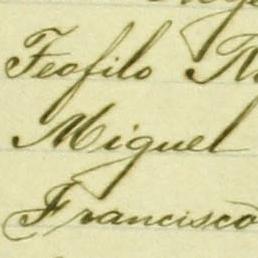 Teofilo
Miguel
Francisco